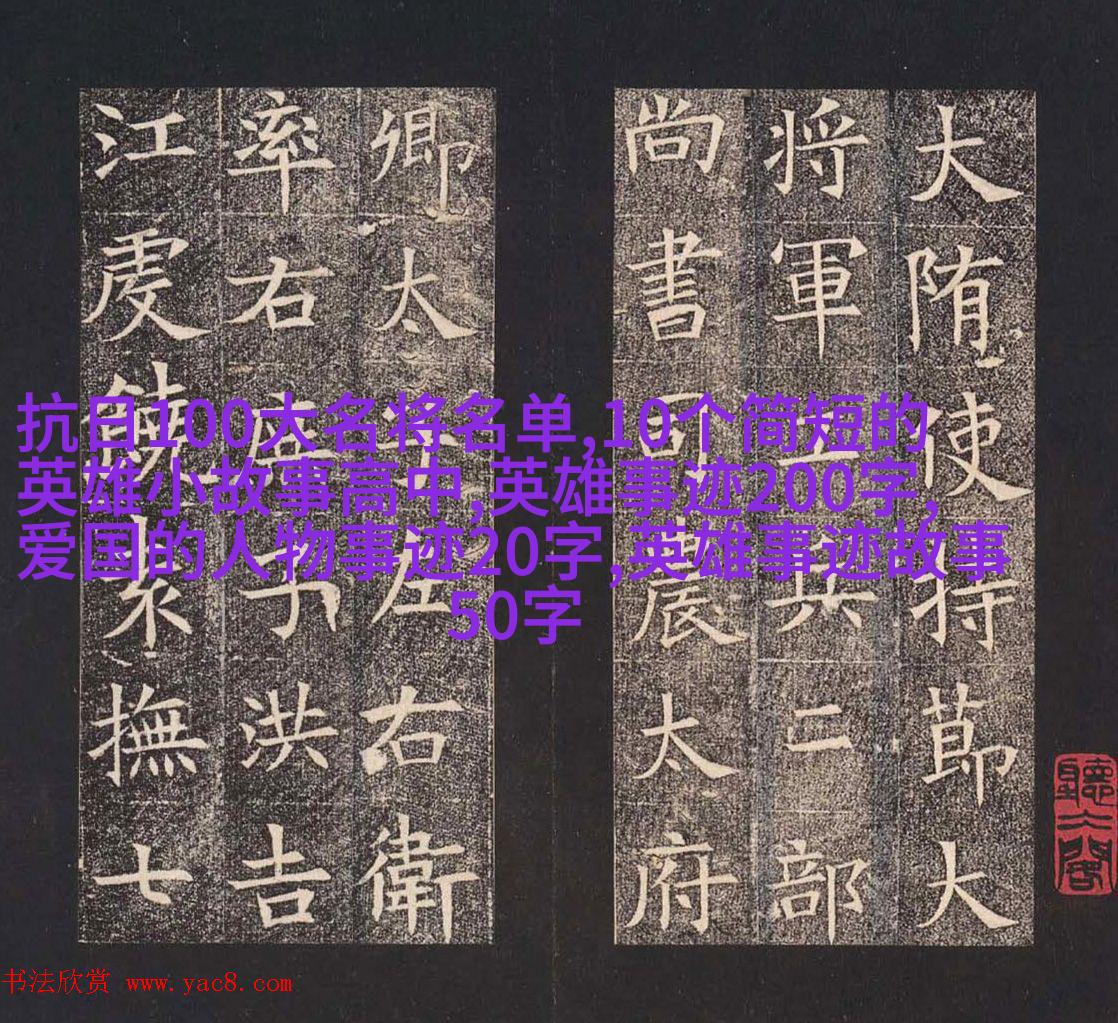 大隋使持節大
将軍工兵二部
尚書司農太府
卿太子左右衛
率右庶子洪吉
江虔饒袁撫七
抗日100大名将名单,10个简短的
英雄小故事高中,英雄事迹200字,
爱国的人物事迹20字,英雄事迹故事
50字
书法欣赏 www.yac8.com